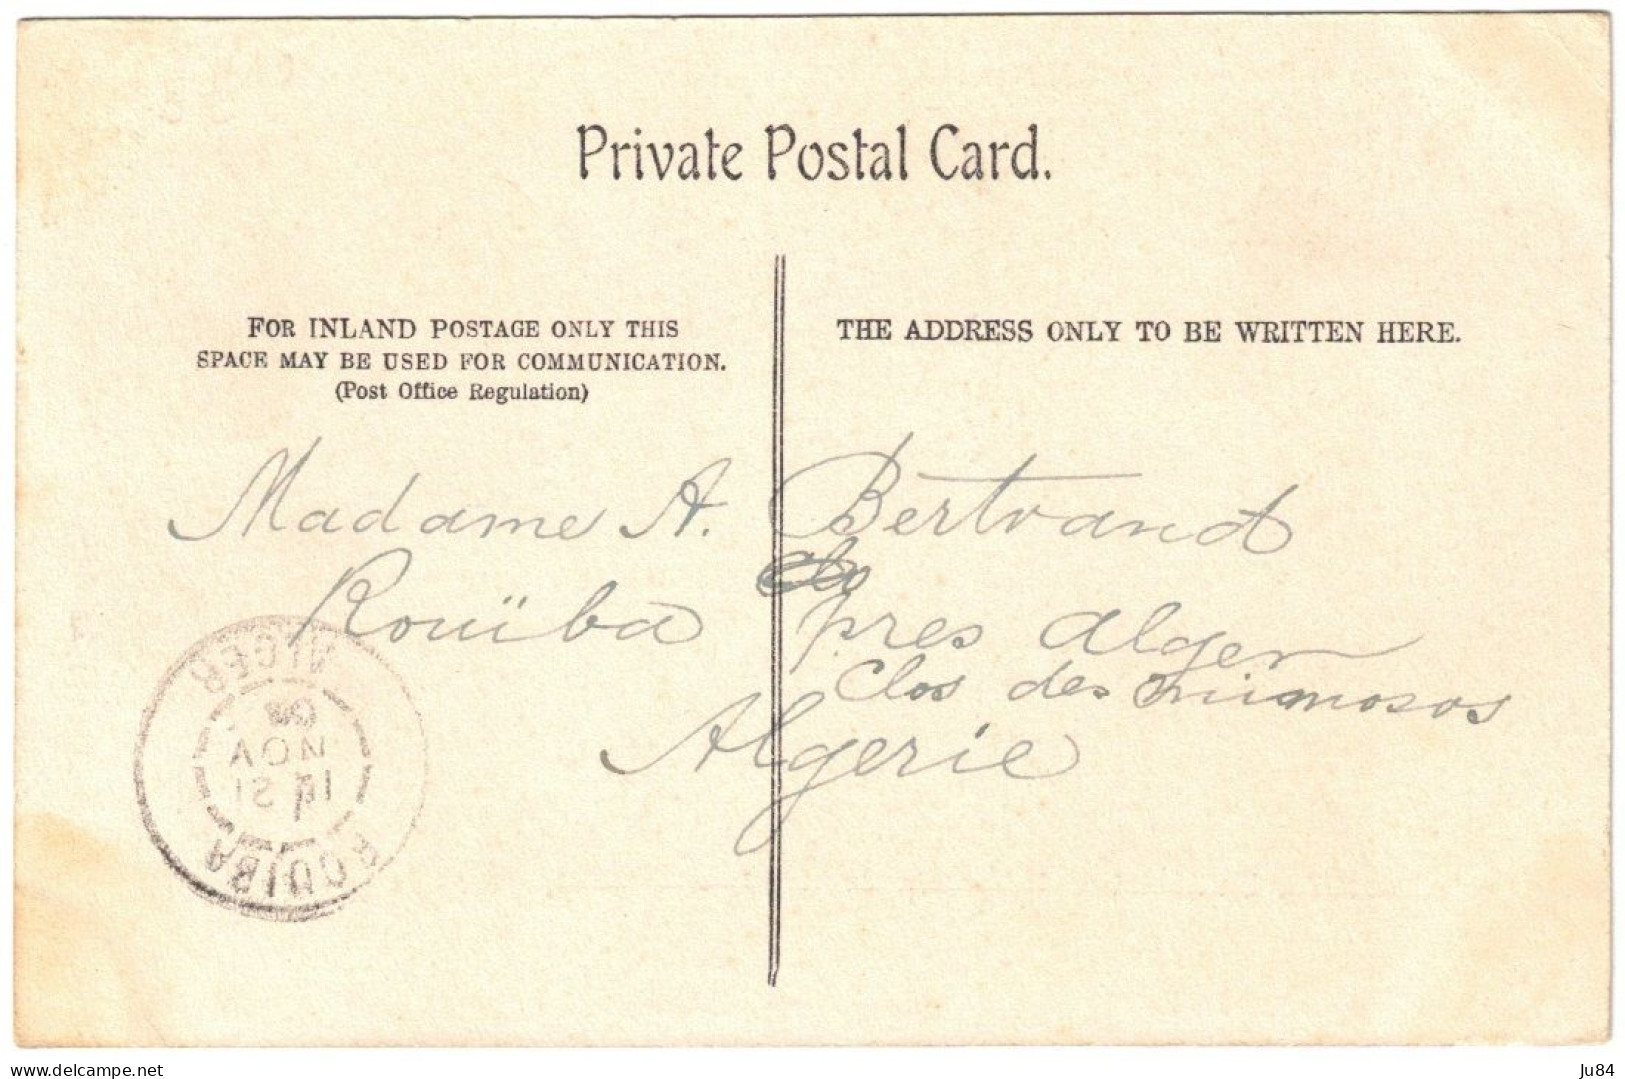 Private Postal Card.
FOR INLAND POSTAGE ONLY THIS
SPACE MAY BE USED FOR COMMUNICATION.
(Post Office Regulation)
THE ADDRESS ONLY TO BE WRITTEN HERE.
Madame A. Bertrand
Rouïba près Alger
Clos des mimosas
Algérie
ROUIBA
ALGER
NOV
delcampe.net
Ju84